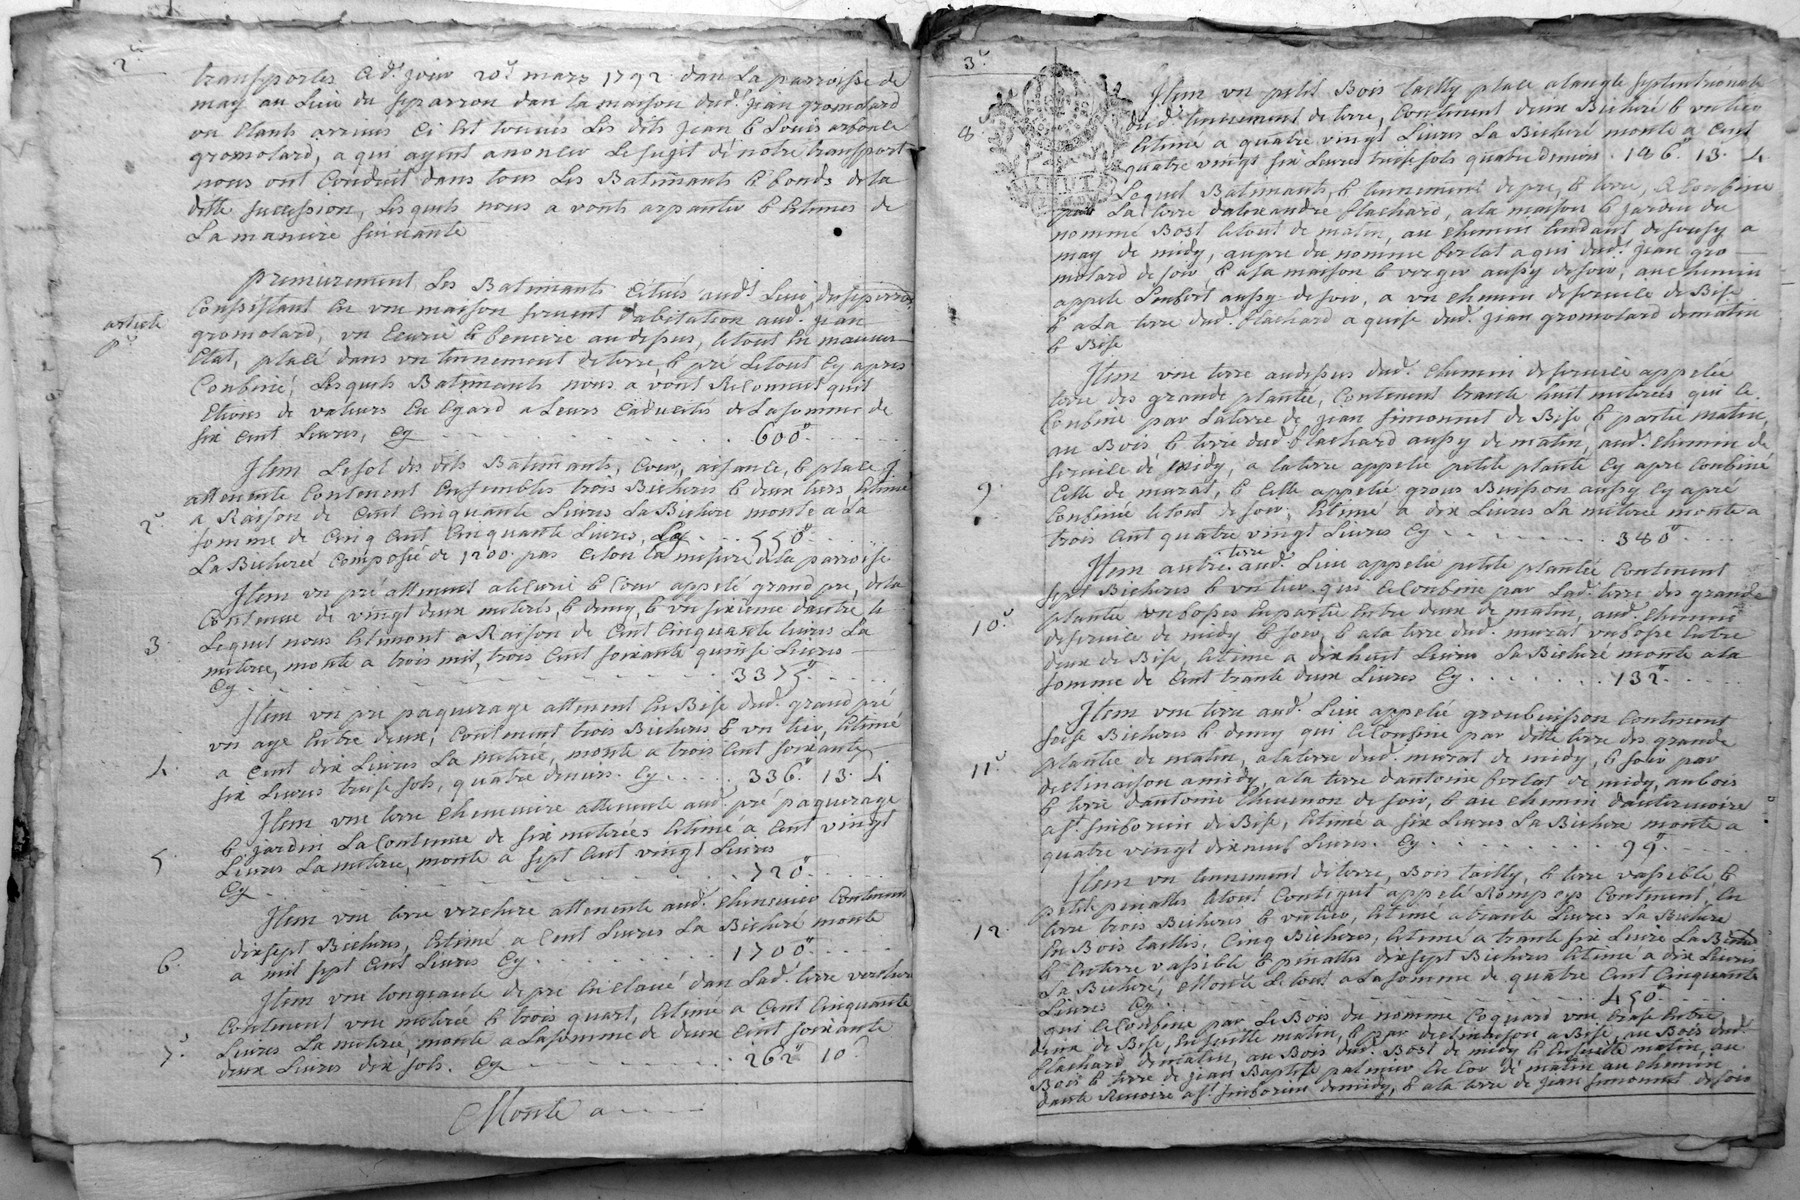 2e
transportes Cid. jour 20e mars 1792 dan La parroisse de
may au Lieu du siparron dan la maison dud. jean gromolard
ou Etants arrives Ci Est touvés Les dits jean & Louis
gromolard, a qui ayent anoncer Le sugit dé notre transport
nous ont Conduit dans tous Les Batimants & fonds de la
ditte succession, Lesquels nous a vonts arpanter & Estimes de
La maniere suivante
premierement Les Batimants Citués aud. Lieu du siparron
article
1er
Consistant En vne maison servent d'abitation aud. jean
gromolard, vn Ecurie & feniere au depsus, letout En mauvais
Etat, placé dans vn tennement de terre & pré Letout Cy apres
Conbiné, Lesquels Batimants nous a vont Reconnut quil
Etions de valeurs En Egard a Leurs Caducités de La somme de
six Cent Livres, Cy . . . 600"
Item Le sol des dits Batimants, Cour, aisance, & place
attenante Contenent Ensembles trois Bicheres & deux tiers Estimé
2e
a Raison de Cent Cinquante Livres La Bichere monte a La
somme de Cinq Cent Cinquante Livres, Cy . . . 550"
La Bicheré Composée de 1200 pas Celon la mesure de la parroisse
Item vn pré attenent alecurie & Cour appelé grand pre, de la
Contenue de vingt deux meterés, & demy, & vn sixieme dautre le
3.
Lequel nous Estimont a Raison de Cent Cinquante Livres La
meterée, monte a trois mil, trois Cent soixante quinse Livres
Cy . . . 3375"
Item vn pre paquerage attenent En Bise dud. grand pré
vn aye Entre deux, Contenent trois Bicheres & vn tier, Estimé
4.
a Cent dix Livres La meterée, monte a trois Cent soixante
six Livres trese sols, quatre deniers. Cy . . . 336" 13. 4
Item vne terre Cheneviere attenente aud. pré paquerage
& jardin La Contenue de six meterées Estimé a Cent vingt
5.
Livres La meterée, monte a sept Cent vingt Livres
Cy . . . 720"
Item vne terre verchere attenente aud. Chenevier Contenent
dixsept Bicheres, Estimé a Cent Livres La Bicheré monte
6.
a mil sept Cent Livres Cy . . . 1700"
Item vne longeante de pre Enclavé dan Lad. terre verchere
Contenent vne meterée & trois quart, Estimé a Cent Cinquante
7e
Livres La meterée, monte a La somme de deux Cent soixante
deux Livres dix sols. Cy . . . 262" 10s
Monte a
3e
Item vn petit Bois tailly place alangle septentrionale
8e
dud. tennement de terre, Contenent deux Bicheré & vn tier
Estimé a quatre vingt Livres La Bicheré monte a Cent
quatre vingt six Livres treise sols quatre deniers. 186" 13. 4
MINUTE
Lequel Batimants, & tennement de pre, & terre, Ce Conbine
par La terre d'alexandre flachard, a la maison & jardin du
nommé Bost letout de matin, au Chemin tendant de sousy a
may de midy, aupre du nomme ferlat a qui dud. jean gro
molard de soir & a sa maison & verger aussy de soir, au Chemin
appele Lenfert aussy de soir, a vn Chemin de service de Bise
& a La terre dud. flachard aquise dud. jean gromolard de matin
& Bise
Item vne terre audepsus dud. Chemin de service appelée
terre des grande plantée, Contenent trante huit meterées qui Ce
Conbine par La terre de jean simonnet de Bise, & partie matin,
au Bois & terre dud. flachard aussy de matin, aud. Chemin de
service dé midy, a la terre appelée petite planté Cy apre Conbiné
9.
Celle de murat, & Celle appelée grous Buisson aussy Cy apré
Conbinée letout de soir, Estimé a dix Livres La meterée monte a
trois Cent quatre vingt Livres Cy . . . 380"
Item autre terre aud. Lieu appelée petite plantée Contenent
sept Bicheres & vn tier qui Ce Conbine par Lad. terre des grande
10e
plantée en partie Entre deux de matin, aud. Chemin
de service de midy & soir, & a la terre dud. murat Entre
deux de Bise, Estimé a dix huit Livres La Bicheré monte a la
somme de Cent trante deux Livres Cy . . . 132"
Item vne terre aud. Lieu appelée groubuisson Contenent
seise Bicheres & demy qui Ce Conbine par ditte terre des grande
11e
plantée de matin, a la terre dud. murat de midy, & soir par
declinaison a midy, a la terre d'antoine ferlat de midy, au bois
& terre d'antoine de soir, & au Chemin
a st. sinforien de Bise, Estimé a six Livres La Bichere monte a
quatre vingt dixneuf Livres. Cy . . . 99"
Item vn tennement de terre, Bois tailly, & terre vassible, &
petite pinattes letout Contigut appelé Contenent, En
12.
terre trois Bicheres & vn tier, Estimé a trante Livres La Bichere
En Bois taillis, Cinq Bicheres, Estimé a trante six Livre La Bicheré
& En terre vassible & pinattes dixsept Bicheres Estimé a dix Livres
La Bichere, Monte Le tout a La somme de quatre Cent Cinquante
Livres Cy . . . 450"
qui Ce Conbine par Le Bois du nomme Coquard vne Entre
deux de Bise, Ensuitte matin, & par declinaison a Bise, au Bois dud.
flachard de matin, au Bois dud. Bost de midy & Ensuitte matin, au
Bois & terre de jean Baptiste de matin au Chemin
a st. sinforien de midy, & a la terre de jean simonnet de soir